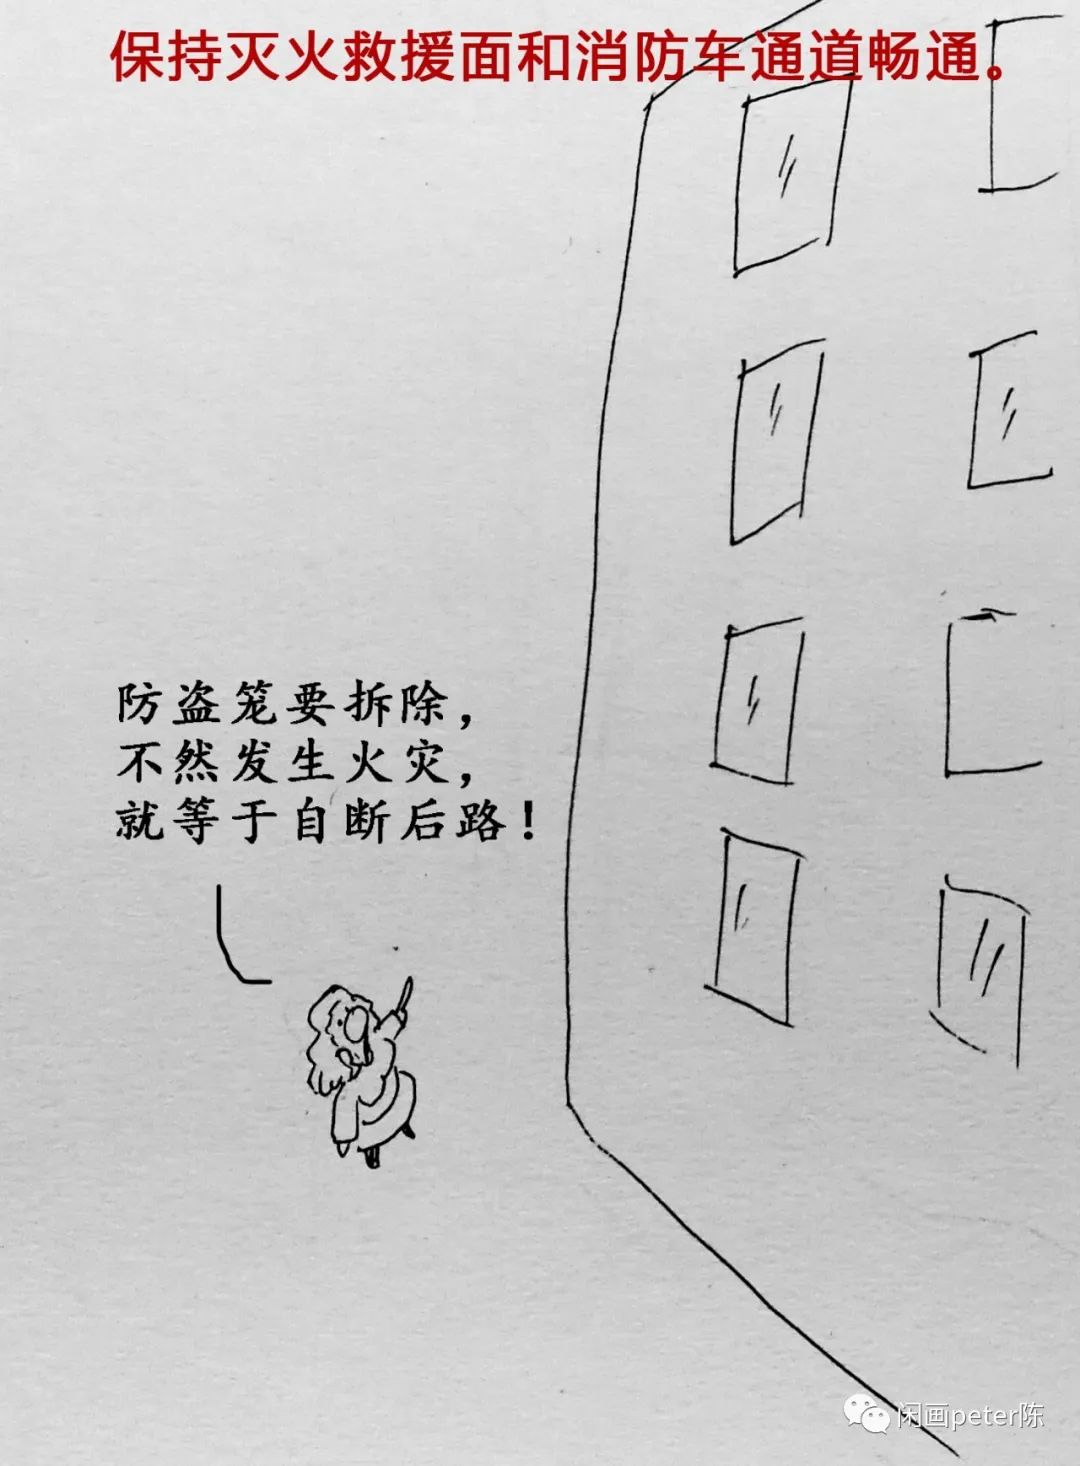 保持灭火救援面和消防车通道畅通。
防盗笼要拆除，
不然发生火灾，
就等于自断后路！
闲画peter陈